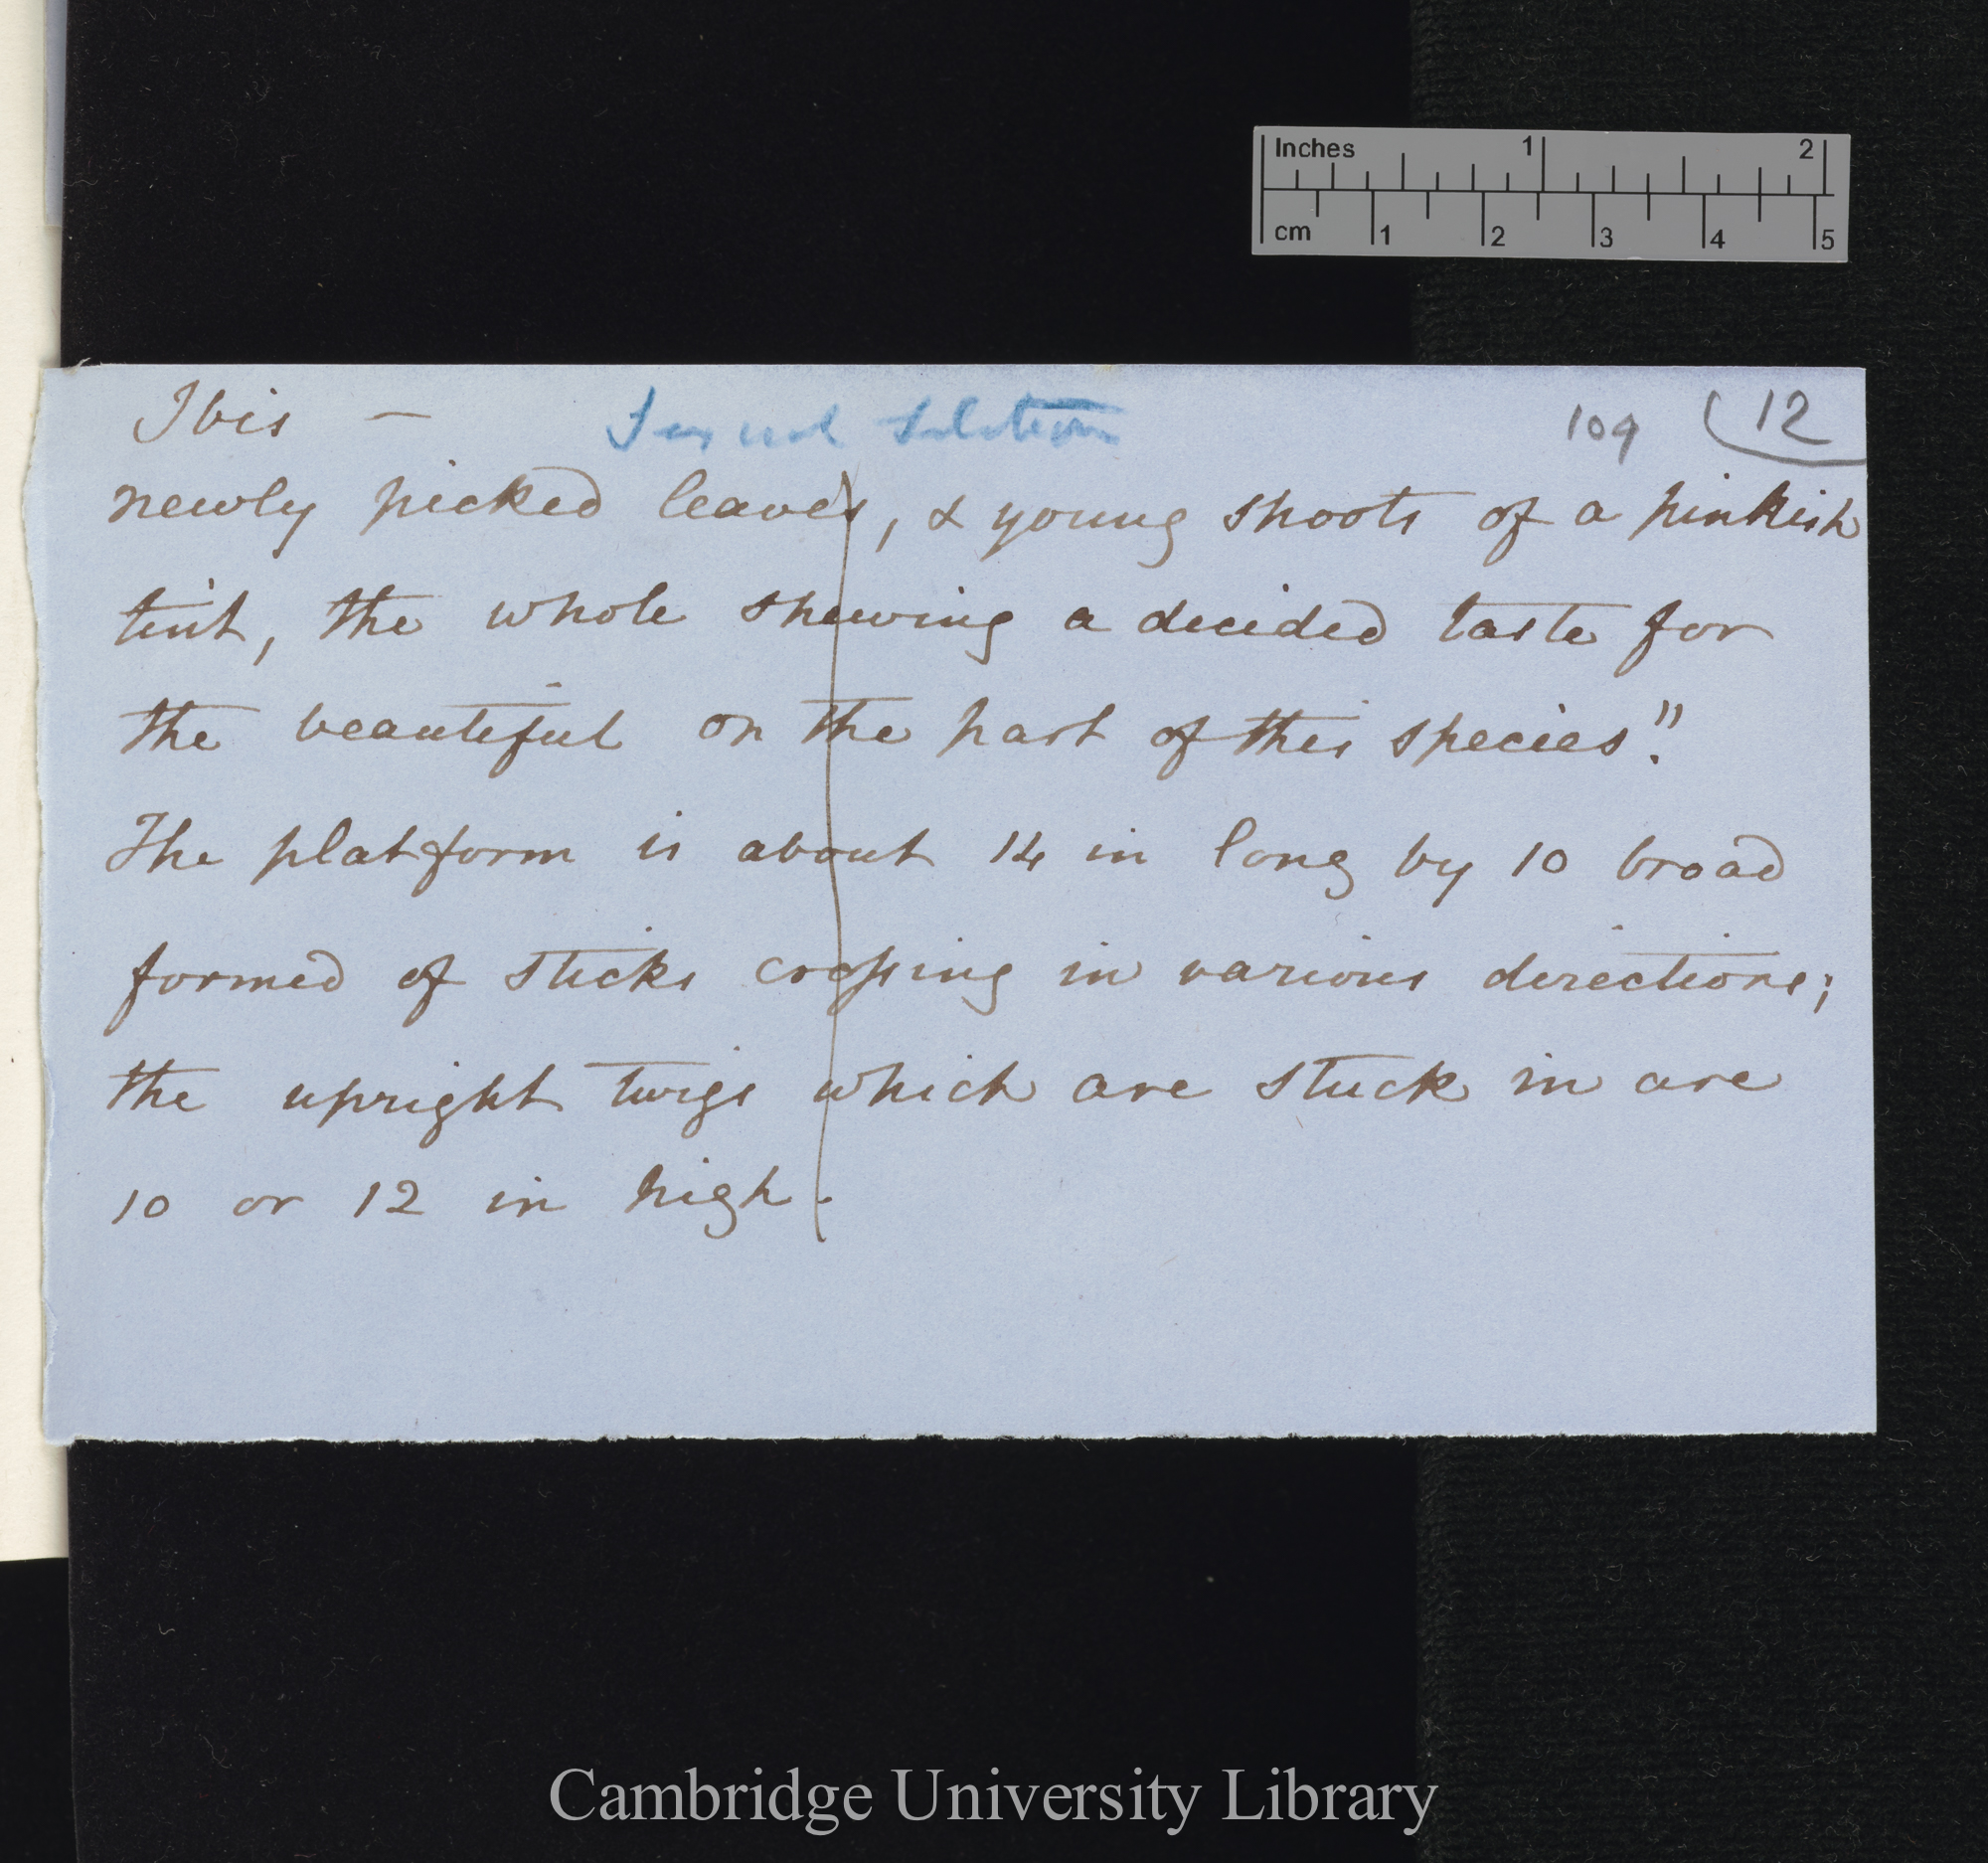 Inches 1 2
cm 1 2 3 4 5
Ibis — Sexual Selection 109 12
newly picked leaves, & young shoots of a pinkish
tint, the whole shewing a decided taste for
the beautiful on the part of this species".
The platform is about 14 in long by 10 broad
formed of sticks crossing in various directions;
the upright twigs which are stuck in are
10 or 12 in high.
Cambridge University Library